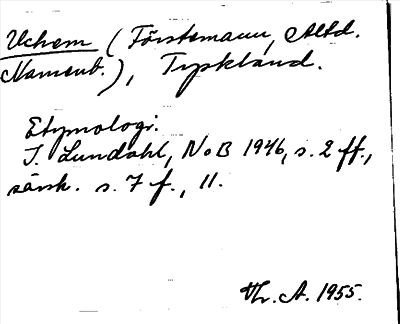 Uchem (Förstemann, Altd.
Namenb.), Tyskland.
Etymologi.
I. Lundahl, NoB 1946, s. 2 ff.,
särsk. s. 7 f., 11.
Vhr. A. 1955.